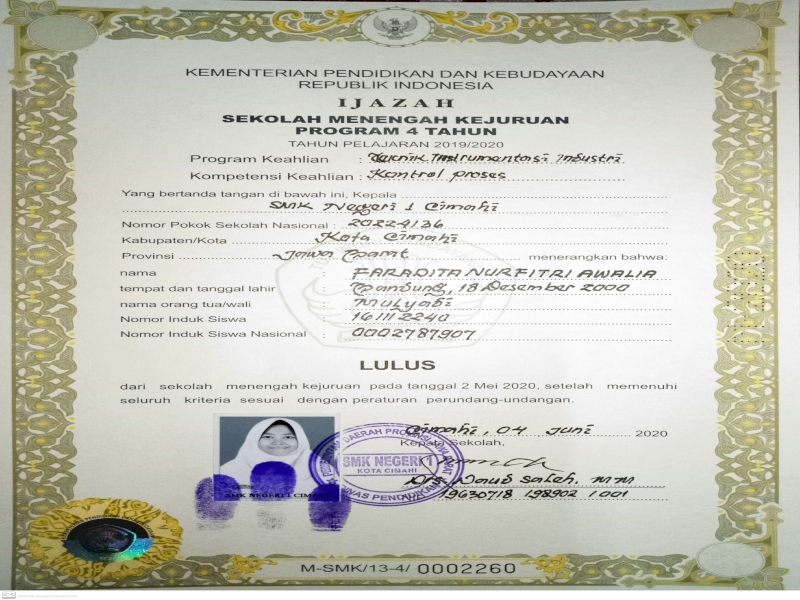 KEMENTERIAN PENDIDIKAN DAN KEBUDAYAAN
REPUBLIK INDONESIA
IJAZAH
SEKOLAH MENENGAH KEJURUAN
PROGRAM 4 TAHUN
TAHUN PELAJARAN 2019/2020
Program Keahlian : Teknik Instrumentasi Industri
Kompetensi Keahlian : Kontrol proses
Yang bertanda tangan di bawah ini, Kepala
SMK Negeri 1 Cimahi
Nomor Pokok Sekolah Nasional : 20224136
Kabupaten/Kota Kota Cimahi
Provinsi Jawa Barat menerangkan bahwa:
nama : FARADITA NURFITRI AWALIA
tempat dan tanggal lahir : Bandung, 18 Desember 2000
nama orang tua/wali : Mulyadi
Nomor Induk Siswa : 161112240
Nomor Induk Siswa Nasional : 0002787907
LULUS
dari sekolah menengah kejuruan pada tanggal 2 Mei 2020, setelah memenuhi
seluruh kriteria sesuai dengan peraturan perundang-undangan.
Cimahi, 04 Juni 2020
Kepala Sekolah,
SMK NEGERI 1
KOTA CIMAHI
Drs. Daud Saleh, MM
19630718 198902 1 001
SMK NEGERI 1 CIMAHI
M-SMK/13-4/ 0002260